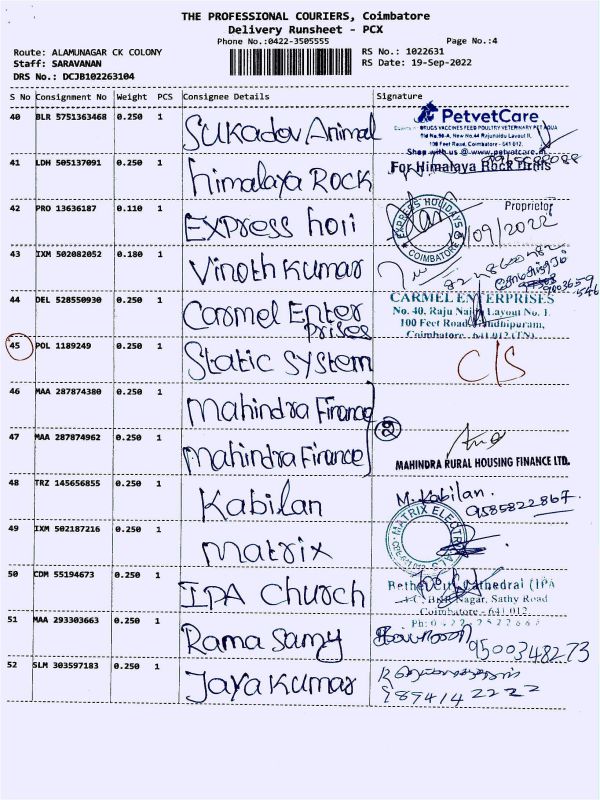 THE PROFESSIONAL COURIERS, Coimbatore
Delivery Runsheet - PCX
Phone No.:0422-3505555
Page No.:4
Route: ALAMUNAGAR CK COLONY
RS No.: 1022631
Staff: SARAVANAN
RS Date: 19-Sep-2022
DRS No.: DCJB102263104
S No Consignment No Weight PCS Consignee Details Signature
40 BLR 5751363468 0.250 1 Sukadov Animal
PetvetCare
DRUGS VACCINES FEED POULTRY VETERINARY PET AQUA
100 Feet Road, Coimbatore - 641 012.
Shop with us @ www.petvetcare.in
41 LDH 505137091 0.250 1 himalaya Rock
For Himalaya Rock Firms
Proprietor
42 PRO 13636187 0.110 1 Express holi
EXPRESS HOLIDAYS
COIMBATORE
/09/2022
43 IXM 502082052 0.180 1 Vinoth Kumar
44 DEL 528550930 0.250 1 Carmel Enter
prises
CARMEL ENTERPRISES
No. 40, Raju Naidu Layout No. 1
100 Feet Road, Gandhipuram,
Coimbatore - 641 012 (TN).
45 POL 1189249 0.250 1 Static System
C/S
46 MAA 287874380 0.250 1 Mahindra Finance
47 MAA 287874962 0.250 1 Mahindra Finance
29
MAHINDRA RURAL HOUSING FINANCE LTD.
48 TRZ 145656855 0.250 1 Kabilan
M. Kabilan.
9585822867
49 IXM 502187216 0.250 1 Matrix
MATRIX
50 CDM 55194673 0.250 1 IPA Church
Bethel City Cathedral (IPA
Nagar, Sathy Road
Coimbatore - 641 012
51 MAA 293303663 0.250 1 Rama Samy
9500348273
52 SLM 303597183 0.250 1 Jaya Kumar
9894142222